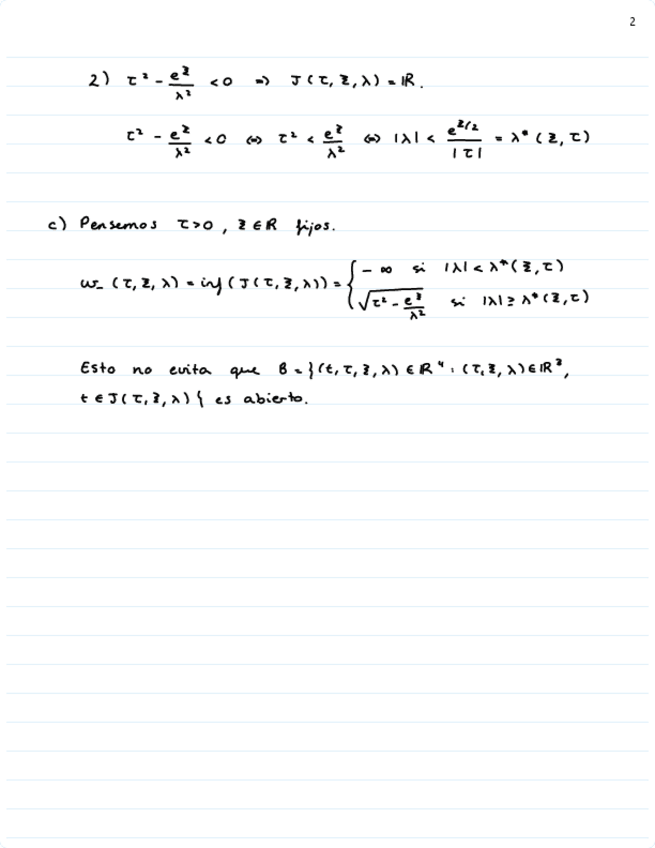 2
2) τ² - e^ξ/λ² < 0 ⇒ J(τ, ξ, λ) = ℝ.
τ² - e^ξ/λ² < 0 ⇔ τ² < e^ξ/λ² ⇔ |λ| < e^{ξ/2}/|τ| = λ*(ξ, τ)
c) Pensemos τ>0, ξ ∈ ℝ fijos.
ω_(τ, ξ, λ) = inf(J(τ, ξ, λ)) = { -∞ si |λ| < λ*(ξ, τ)
√(τ² - e^ξ/λ²) si |λ| ≥ λ*(ξ, τ)
Esto no evita que B = {(t, τ, ξ, λ) ∈ ℝ⁴ : (τ, ξ, λ) ∈ ℝ³,
t ∈ J(τ, ξ, λ)} es abierto.